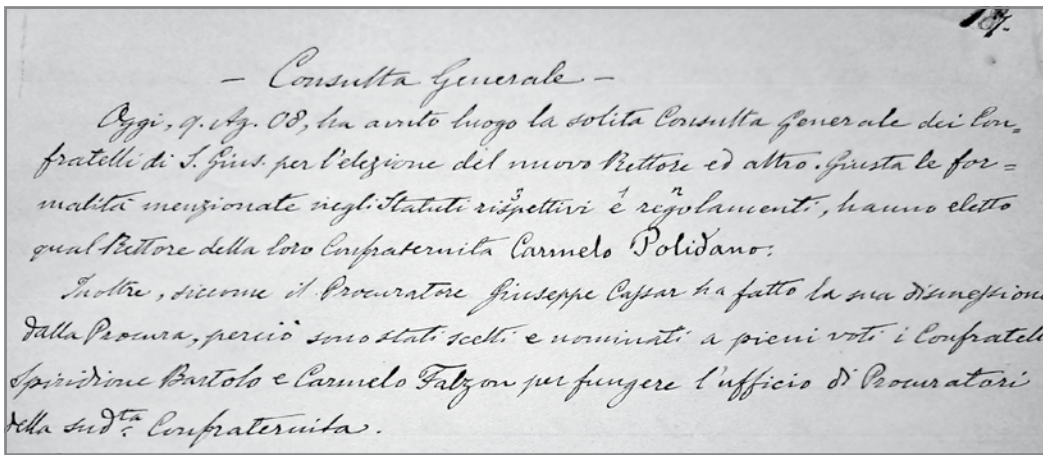 187.
— Consulta Generale —
Oggi, 9. Ag. 08, ha avuto luogo la solita Consulta Generale dei Con=
fratelli di S. Gius. per l'elezione del nuovo Rettore ed altro. Giusta le for=
malità menzionate negli Statuti rispettivi e regolamenti, hanno eletto
qual Rettore della loro Confraternita Carmelo Polidano.
Inoltre, siccome il Procuratore Giuseppe Cassar ha fatto la sua dismessione
dalla Procura, perciò sono stati scelti e nominati a pieni voti i Confratelli
Spiridione Bartolo e Carmelo Falzon per fungere l'ufficio di Procuratori
della sudta. Confraternita.